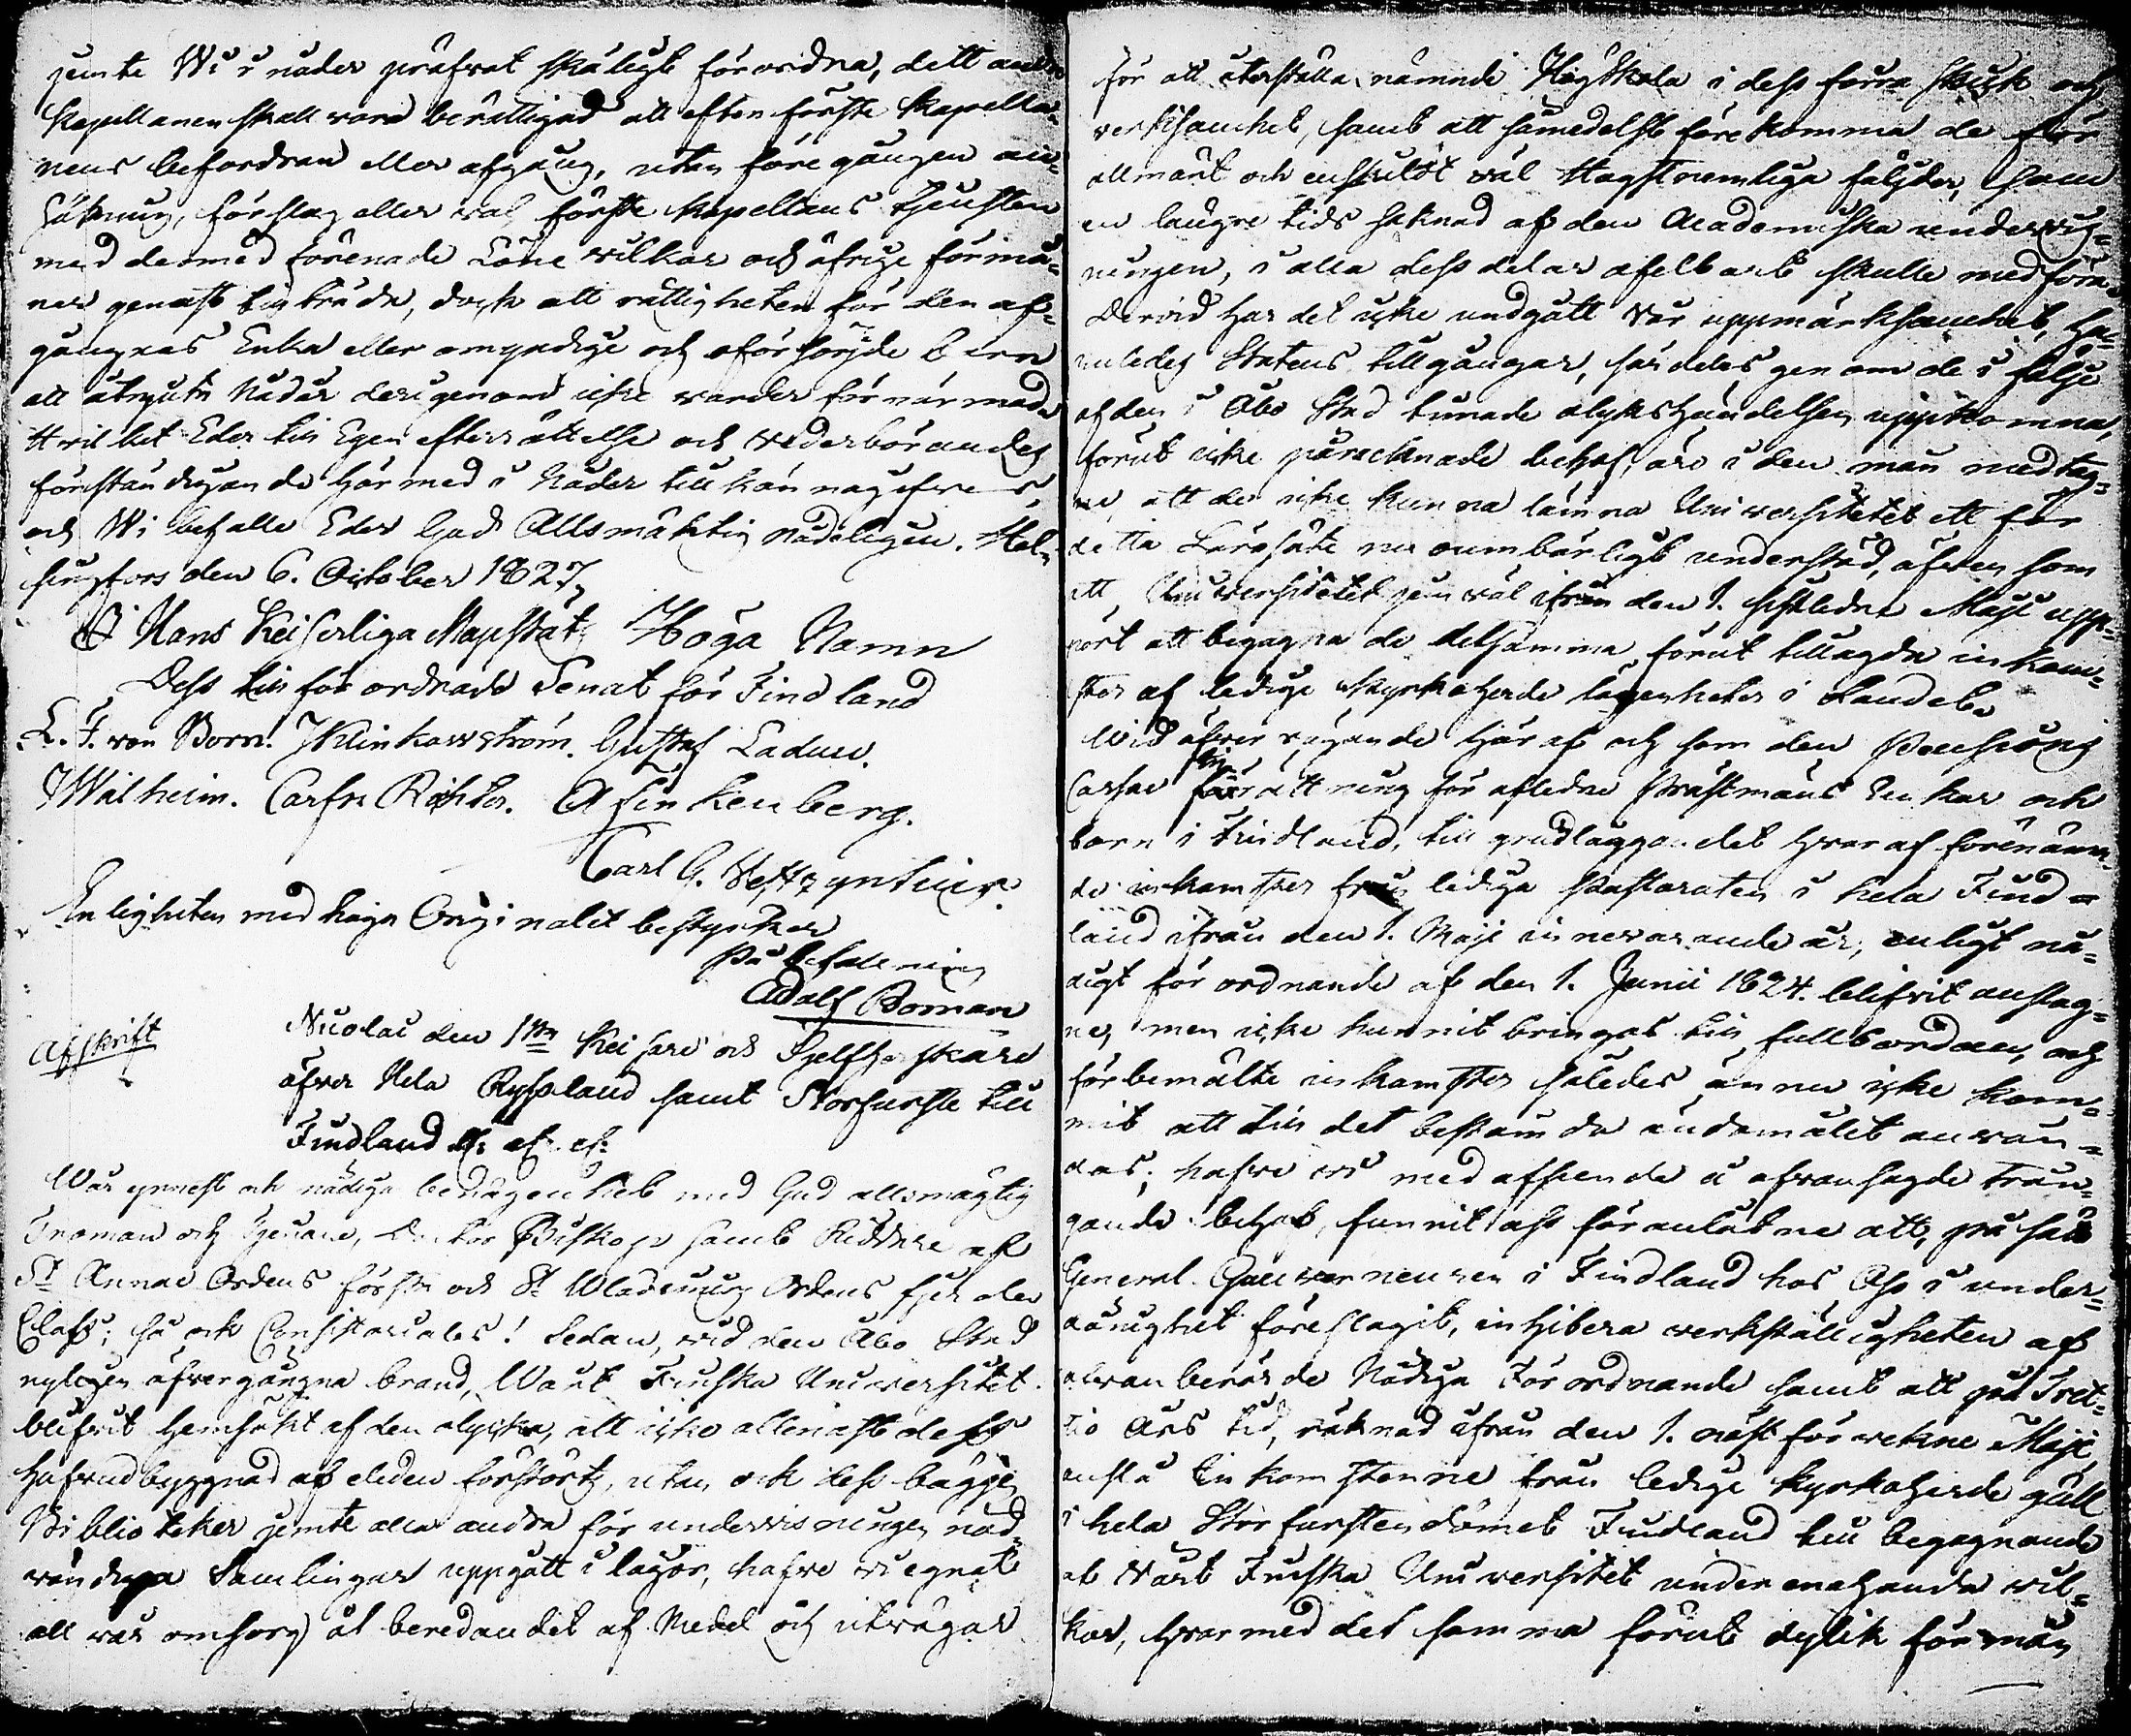 jemte Wi i nåder pröfvat skäligt förordna, det andre
Kapellanen skall vara berättigad att efter förste Kapella-
nens befordran eller afgång, utan föregången an-
sökning, förslag eller val, förste Kapellans tjensten
med dermed förenade Löne wilkor och öfrige förmå-
ner genast tillträda, dock att rättigheten för den af-
gångnas Enka eller omyndige och oförsörjde barn
att åtnjuta Nådår derigenom icke warder förnärmad.
Hvilket Eder till Egen efterrättelse och wederbörandes
förständigande härmed i Nåder tillkännagifves,
och Wi befalle Eder Gud Allsmäktig nådeligen. Hel-
singfors den 6. October 1827,
I Hans Keiserliga Majestäts Höga Namn
Dess till förordnade Senat för Finland
L. F. von Born. J Klinkowström. Gustaf Ladau.
J Walheim. Carl Fr. Richter. A Falkenberg.
Carl G. Vestzynthius.
Enligheten med höga Originalet bestyrker
På befallning
Adolf Boman
Afskrift
Nicolai den 1ste Keisare och Sjelfherskare
öfver Hela Ryssland samt Storfurste till
Findland etc. etc. etc.
Wår ynnest och nådiga benägenhet med Gud allsmägtig
Troman och Tjenare, Doctor Biskop samt Riddare af
St Annae Ordens första och St Wladimirs Ordens fjerde
Class; så ock Consistoriales! Sedan, wid den Åbo Stad
nyligen öfvergångna brand, Wårt Finska Universitet
blifvit hemsökt af den olycka, att icke allenast dess
Hufvudbyggnad af elden förstörts, utan ock dess bägge
Bibliotheker jemte alla andra för undervisningen nöd-
vändiga Samlingar uppgått i lågor, hafve wi egnat
all vår omsorg åt beredandet af Medel och utvägar
för att återställa nämnde Högskola i dess förra skick och
verksamhet, samt att såmedelst förekomma de för
allmänt och enskildt väl Högst menliga följder, som
en längre tids saknad af den Academiska undervis-
ningen, i alla dess delar ofelbart skulle medföra.
Dervid har det icke undgått Vår uppmärksamhet, hu-
ruledes Statens tillgångar, särdeles genom de i följe
af den i Åbo Stad timade olyckshändelsen uppkomna,
förut icke påräknade behof, äro i den mån medtag-
ne, att de icke kunna lämna Universitetet ett för
detta Lärosäte nu oumbärligt understöd, äfven som
att Universitetet jemväl ifrån den 1. sistledne Maji upp-
hört att begagna de detsamma förut tillagda inkom-
ster af ledige Kyrkoherde lägenheter i Landet.
Wid öfvervägande häraf och som den Pensions
Cassae inrättning för aflidne Prästmäns Enkor och
barn i Findland, till grundläggandet hvaraf förenämn-
de inkomster från lediga Pastoraten i hela Find-
land ifrån den 1. Maji innevarande år, enligt nå-
digt förordnande af den 1. Junii 1824. blifvit anslag-
ne, men icke kunnit bringas till fullbordan, och
förbemälte inkomster således ännu icke kom-
mit att till det bestämda ändamålet använ-
das; hafve wi med afseende å ofvansagde trän-
gande behof, funnit oss föranlåtne att, på sätt
General Gouverneuren i Findland hos Oss i under-
dånighet föreslagit, inhibera verkställigheten af
ofvanberörde Nådiga Förordnande samt att på Tret-
tio Års tid, räknad ifrån den 1. näst förvekne Maji,
anslå Inkomsterne från ledige Kyrkoherde gäll
i hela Storfurstendömet Findland till begagnande
at Vårt Finska Universitet under enahanda vil-
kor, hvarmed det samma förut dylik förmån